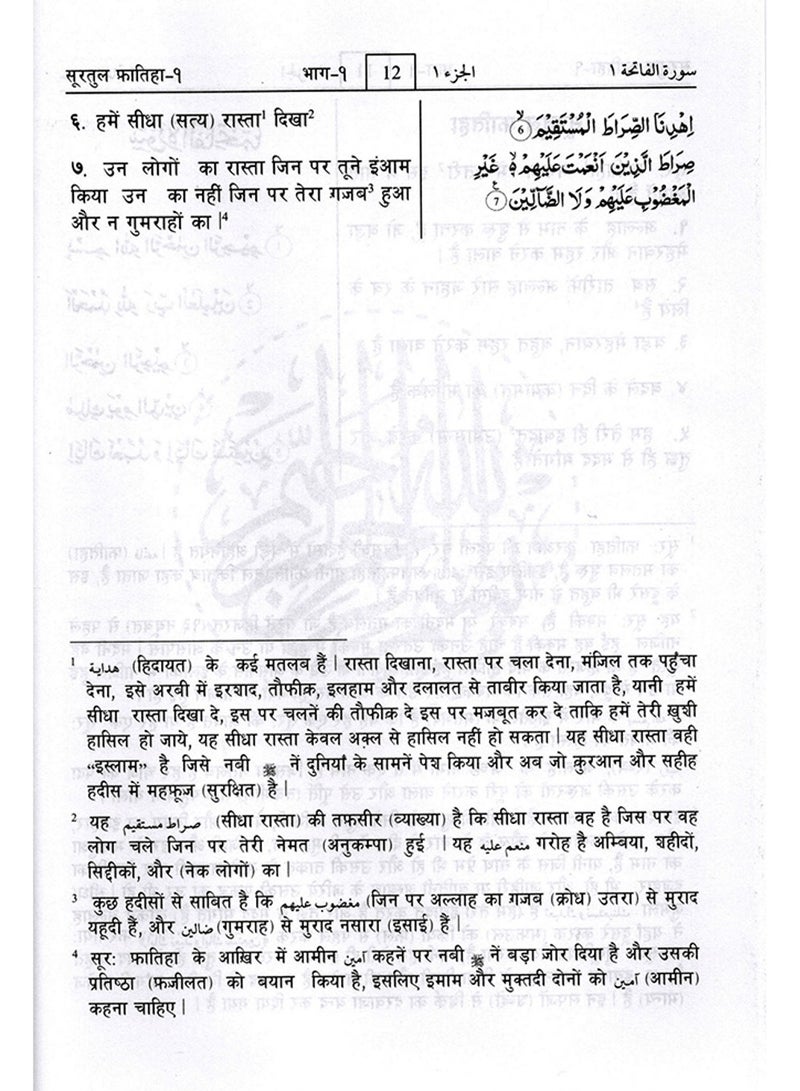 सूरतुल फ़ातिहा-१ भाग-१ 12 الجزء ١ سورة الفاتحة ١
६. हमें सीधा (सत्य) रास्ता¹ दिखा²
७. उन लोगों का रास्ता जिन पर तूने इंआम
किया उन का नहीं जिन पर तेरा ग़जब³ हुआ
और न गुमराहों का |⁴
اِهْدِنَا الصِّرَاطَ الْمُسْتَقِيْمَ ۙ6
صِرَاطَ الَّذِيْنَ اَنْعَمْتَ عَلَيْهِمْ ۙ غَيْرِ
الْمَغْضُوْبِ عَلَيْهِمْ وَلَا الضَّآلِّيْنَ 7
¹ هداية (हिदायत) के कई मतलब हैं | रास्ता दिखाना, रास्ता पर चला देना, मंजिल तक पहुँचा
देना, इसे अरबी में इरशाद, तौफ़ीक़, इलहाम और दलालत से ताबीर किया जाता है, यानी हमें
सीधा रास्ता दिखा दे, इस पर चलनें की तौफ़ीक़ दे इस पर मजबूत कर दे ताकि हमें तेरी ख़ुशी
हासिल हो जाये, यह सीधा रास्ता केवल अक़्ल से हासिल नहीं हो सकता | यह सीधा रास्ता वही
“इस्लाम” है जिसे नबी ﷺ नें दुनियाँ के सामनें पेश किया और अब जो क़ुरआन और सहीह
हदीस में महफ़ूज (सुरक्षित) है |
² यह صراط مستقيم (सीधा रास्ता) की तफ़सीर (व्याख्या) है कि सीधा रास्ता वह है जिस पर वह
लोग चले जिन पर तेरी नेमत (अनुकम्पा) हुई | यह منعم عليه गरोह है अम्बिया, शहीदों,
सिद्दीकों, और (नेक लोगों) का |
³ कुछ हदीसों से साबित है कि مغضوب عليهم (जिन पर अल्लाह का ग़जब (क्रोध) उतरा) से मुराद
यहूदी हैं, और ضالين (गुमराह) से मुराद नसारा (इसाई) हैं |
⁴ सूर: फ़ातिहा के आख़िर में आमीन آمين कहनें पर नबी ﷺ नें बड़ा जोर दिया है और उसकी
प्रतिष्ठा (फ़जीलत) को बयान किया है, इसलिए इमाम और मुक्तदी दोनों को آمين (आमीन)
कहना चाहिए |